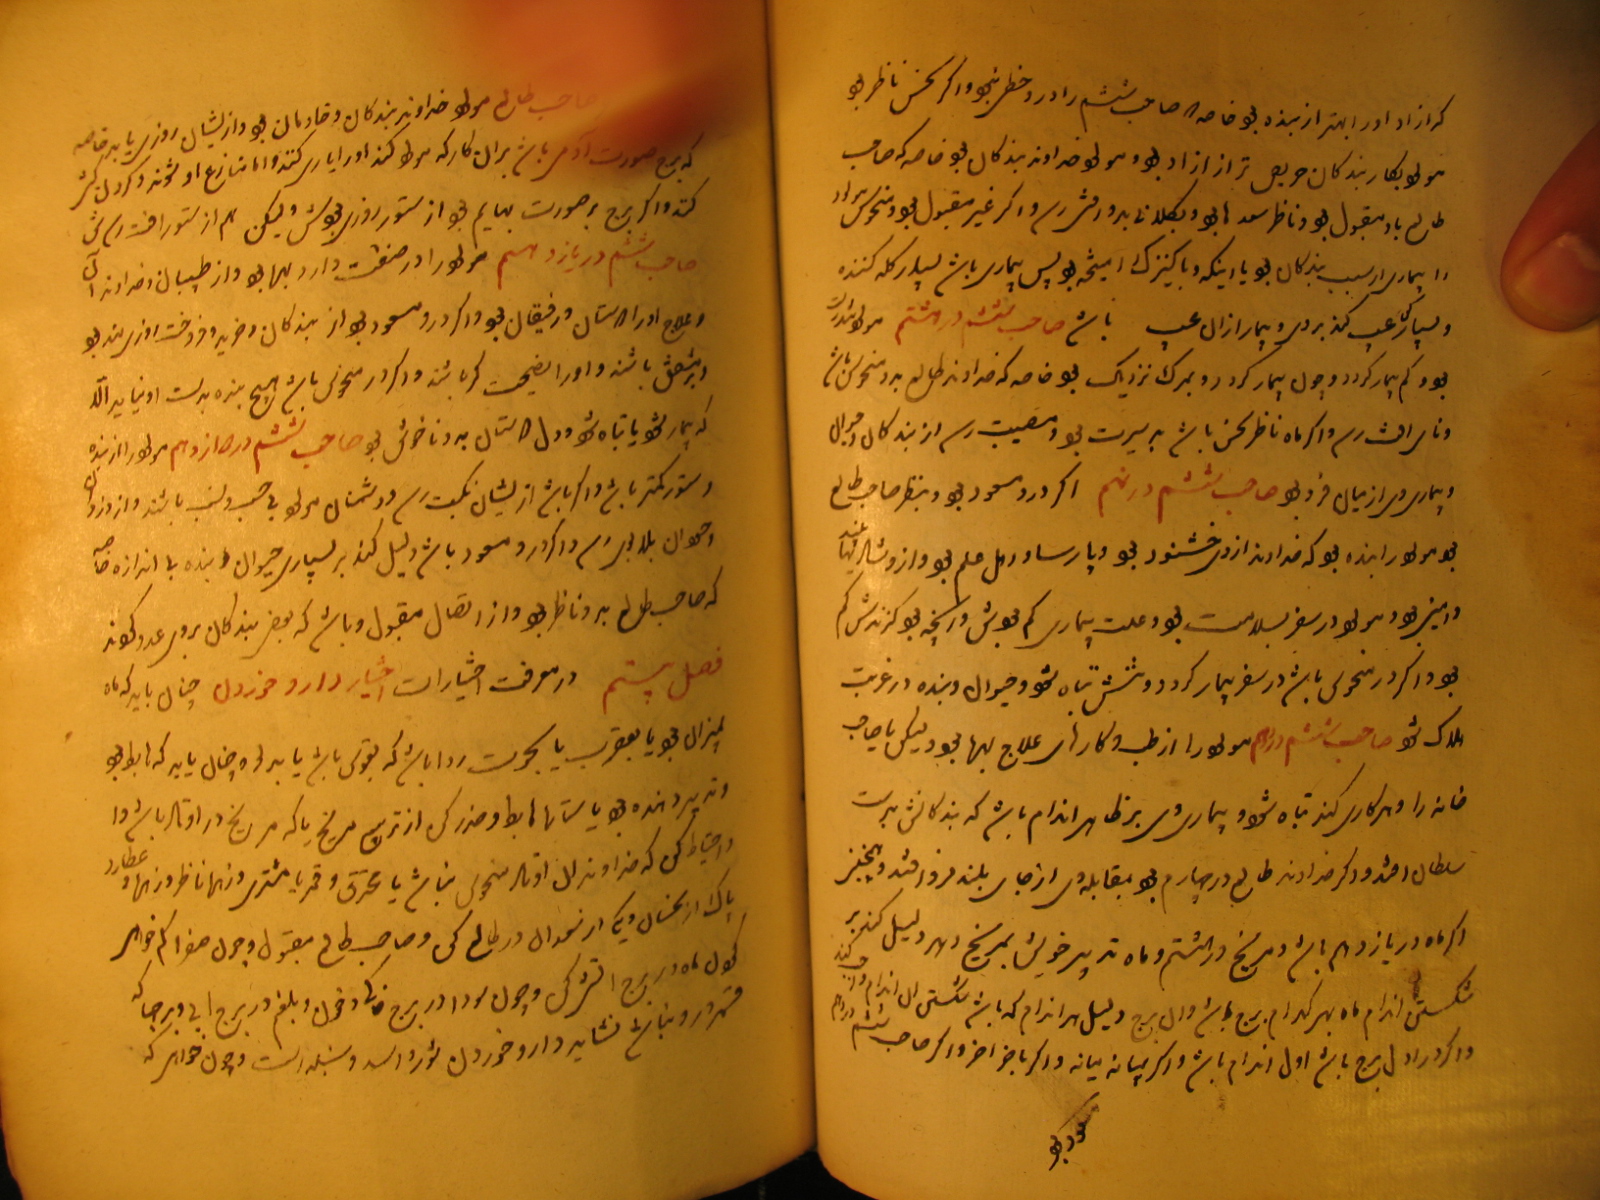 که از آزاد او را بهتر از بنده بود خاصه صاحب ششم را در و خطر بود و اگر نحس ناظر بود
مولود بکار بندکان حریص تر از آزاد بود و مولود خداوند بندکان بود خاصه که صاحب
طالع باو مقبول بود و ناظر سعدها بود و اگر غیر مقبول بود و منحوس
را بیماری از سبب بندکان بود یا اینکه و با کنیزک آمیخته بود پس بیماری باشد بسیار کله کننده
باشد صاحب ششم در هشتم مولود
بود و کم بیمار کردد و چون بیمار کردد و بمرک نزدیک بود خاصه که خداوند طالع بدو منحوس باشد
رسد و اگر ماه ناظر نحس باشد بد سیرت بود و مصیبت رسد از بندکان و حیوان
و بیماری وی از میان بود صاحب ششم در نهم اگر درو مسعود بود و بنظر صاحب طالع
بود مولود را بنده بود که خداوند از وی خشنود بود و پارسا و اهل علم بود و ازو
و امین بود و مولود در سفر بسلامت بود و علت بیماری کم بودش و آنچه بود کزندش کم
بود و اگر در منحوس باشد در سفر بیمار کردد و تنش تباه شود و حیوان و بنده در غربت
هلاک شود صاحب ششم در دهم مولود را از طب و کارهای علاج بها بود و لیکن با صاحب
خانه را و هر کاری کند تباه شود و بیماری وی بر ظاهر اندام باشد که بندکانش بدست
سلطان افتد و اگر خداوند طالع در چهارم بود بمقابله وی از جای بلند فرو افتد و همچنین
اگر ماه در یازدهم باشد و مریخ در هشتم و ماه تدبیر خویش بمریخ دهد و دلیل کند بر
شکستن اندام ماه بهر کدام برج باشد و آن برج دلیل هر اندام که باشد شکستن آن اندام واجب کند
و اگر در اول برج باشد اول اندام باشد و اگر میانه میانه و اگر باخر اخر و اگر صاحب ششم در دهم
صاحب طالع مولود خداوند بندکان و خادمان بود و از ایشان روزی یابد خاصه
که برج صورت آدمی باشد بر آن کار که مولود کند او را یاری کنند و اما منازع او شوند و کردن کشی
کنند و اگر برج بر صورت بهایم بود از ستور روزی بودش و لیکن هم از ستور آفت رسدش
صاحب ششم در یازدهم مولود را در صنعت دارو بهها بود و از طبیبان و خداوندان
و علاج او را دوستان و رفیقان بود و اگر درو مسعود بود از بندکان و خرید و فروخت روزی مند بود
باشند و او را نصیحت کر باشند و اگر در منحوس باشد هیچ بنده بدست او نیاید الا
که بیمار شود یا تباه شود و دل دوستان بدو ناخوش بود صاحب ششم در دوازدهم مولود را از بنده
و ستور کمتر باشد و اگر باشد از ایشان نکبت رسد و دشمنان مولود بی حسب و نسب باشند و از دزدان
و حیوان بلا بوی رسد و اگر درو مسعود باشد دلیل کند بر بسیاری حیوان و بنده بی اندازه خاصه
که صاحب طالع بدو ناظر بود و از اتصال مقبول و باشد که بعضی بندکان بروی عدو شوند
فصل بیستم در معرفت اختیارات اختیار دارو خوردن چنان باید که ماه
بمیزان بود یا بعقرب یا بحوت روا باشد که بقوس باشد یا بدلو و چنان باید که هابط بود
و تدبیر دهنده بود با ستاره هابط و حذر کن از تربیع مریخ یا که مریخ در اوتاد باشد و
و احتیاط کن که خداوند آن اوتاد منحوس نباشد یا محترق و قمر با مشتری و زهره ناظر و زهره و عطارد
پاک از نحسان و یکی از سعدان در طالع کن و صاحب طالع مقبول و چون صفرا کم خواهی
کردن ماه در برج آتشی کن و چون سودا در برج خاکی و خون و بلغم در برج آبی و هر جا که
قمر درو نباشد نشاید دارو خوردن ثور و اسد و سنبله است و چون خواهی که